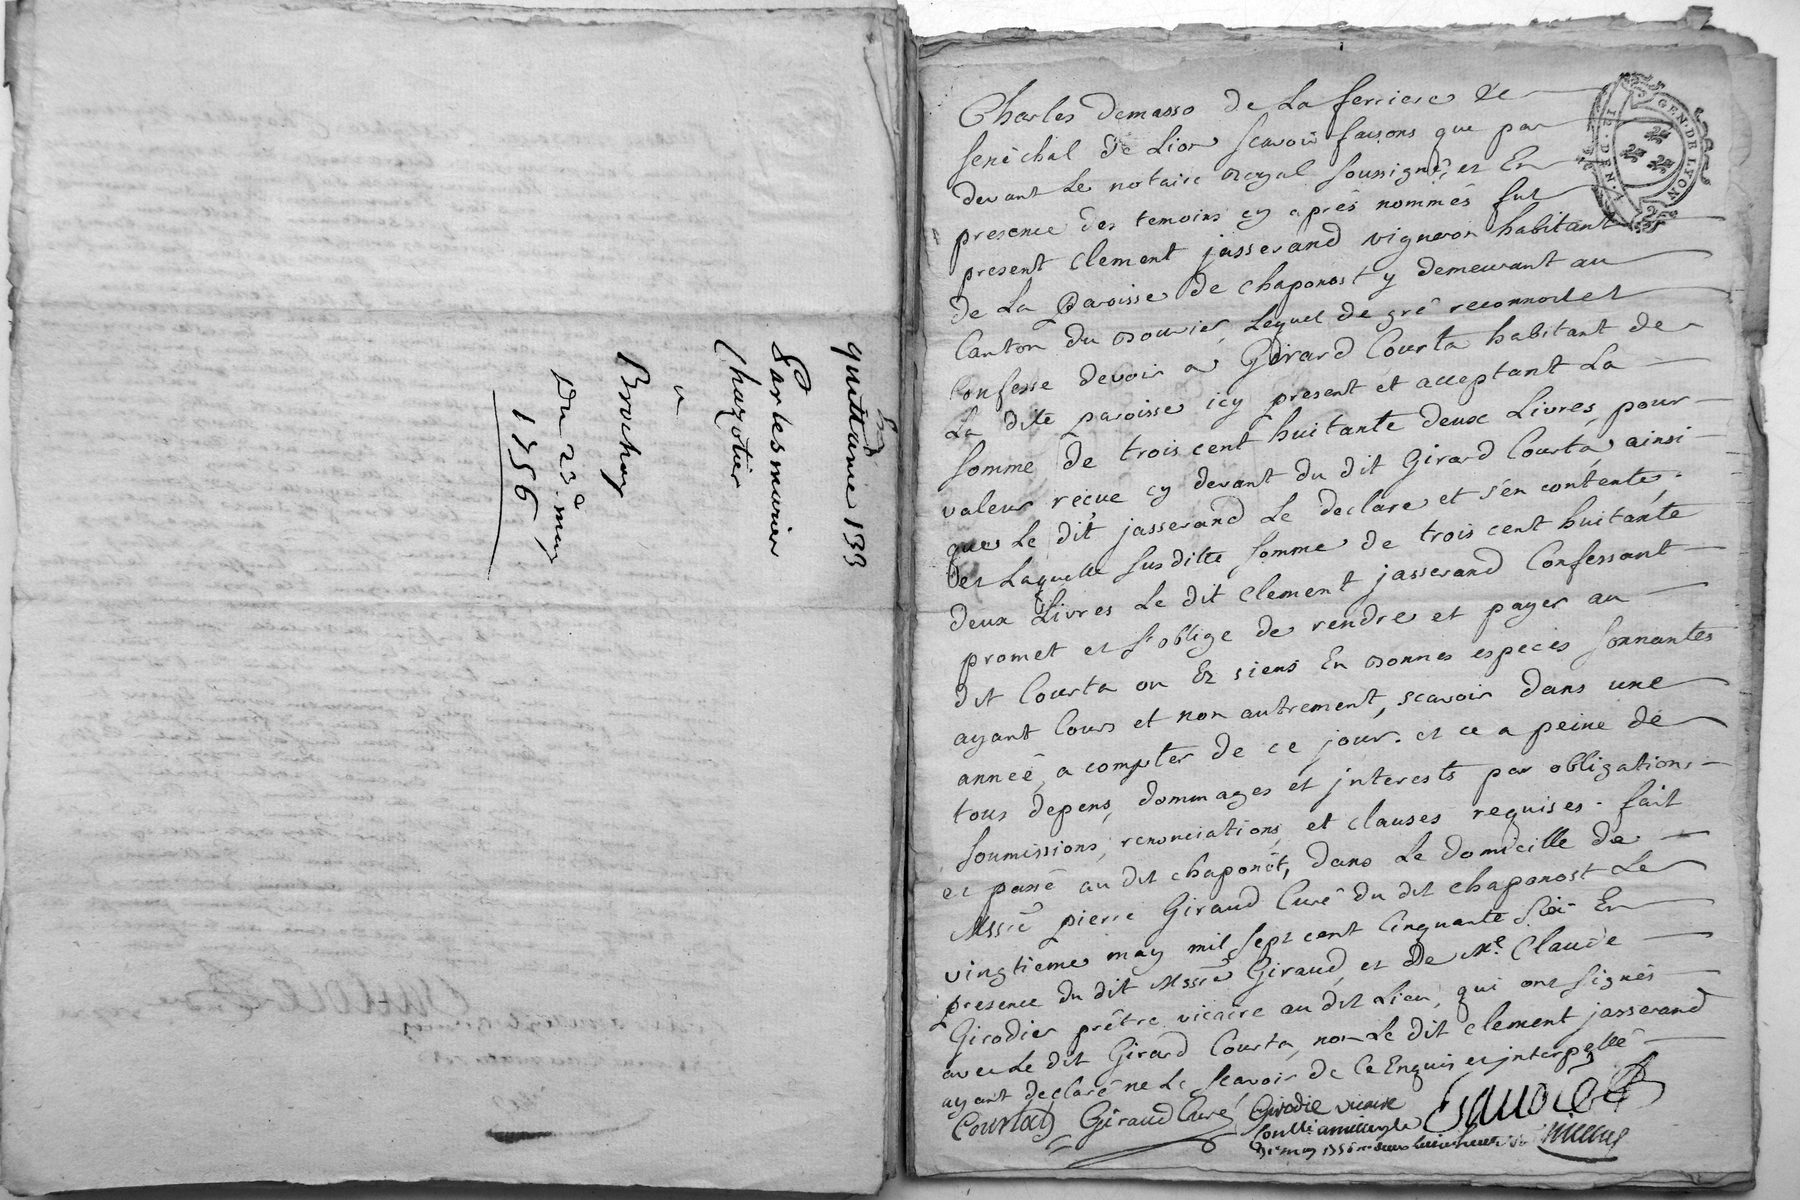 quittance 133
Par les murier
Chazotier
a
Brochay
Du 23.d may
1756
GEN. DE LYON
Charles demasso de La ferriere &e
senêchal de Lion scavoir faisons que par
devant Le notaire Royal soussignê, et En
presence des temoins cy aprês nommês fut
present Clement jasserand vigneron habitant
de La Paroisse de chaponost y demeurant au
Canton du bouvier, Lequel de grê reconnoit et
Confesse devoir a Girard Courta habitant de
La dite paroisse icy present et acceptant La
somme de trois cent huitante deux Livres, pour
valeur reçue cy devant du dit Girard Courta, ainsi
que Le dit jasserand Le declare et s'en contente,
de Laquelle susditte somme de trois cent huitante
deux Livres Le dit Clement jasserand Confessant
promet et s'oblige de rendre et payer au
dit Courta ou Ez siens En bonnes especes sonnantes
ayant Cours et non autrement, scavoir dans une
annêe, a compter de ce jour. et ce a peine de
tous depens, dommages et jnterests par obligations
soumissions, renonciations, et clauses requises. fait
et passê au dit chaponôt, dans Le domicille de
Mssiê pierre Giraud Curê du dit chaponost Le
vingtieme may mil sept cent Cinquante six En
presence du dit Mssiê Giraud, et De Me. Claude
Girodier prêtre vicaire au dit Lieu, qui ont signês
avec Le dit Girard Courta, non Le dit Clement jasserand
ayant declarê ne Le scavoir de Ce Enquis et jnterpellê
Courta Giraud Curé Girodie vicaire